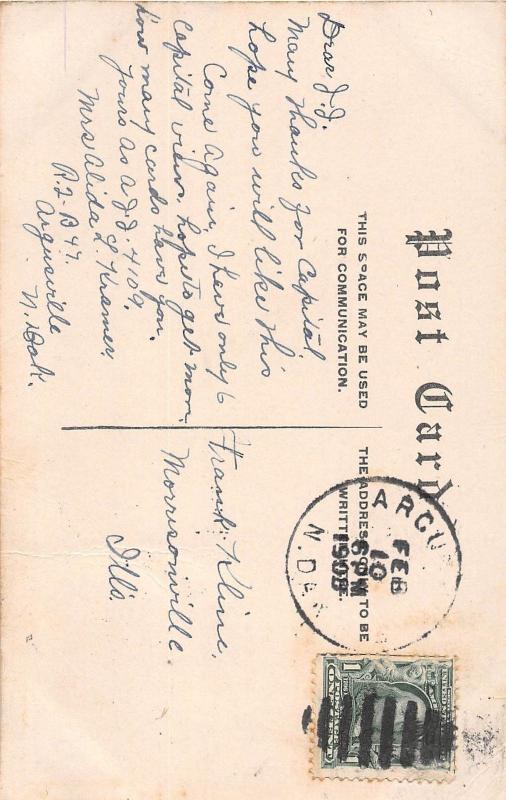 Post Card
THIS SPACE MAY BE USED
FOR COMMUNICATION.
THE ADDRESS ONLY TO BE
WRITTEN HERE.
Dear J.J.
Many thanks for Capital.
hope you will like this
Come again, I have only 6
Capital views. hope to get mor.
how many cards have you.
Yours as a J.J. 4109.
Mrs Alida L. Kramer.
R.2-B47.
Argusville
N. Dak.
Frank Kline,
Morrisonville.
Ills.
ARGUS
FEB
10
6PM
1909
N.DAK
1 1
POSTAGE
ONE CENT